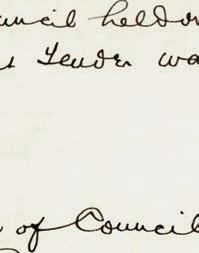 uncil held on
s Tender wa
of Council